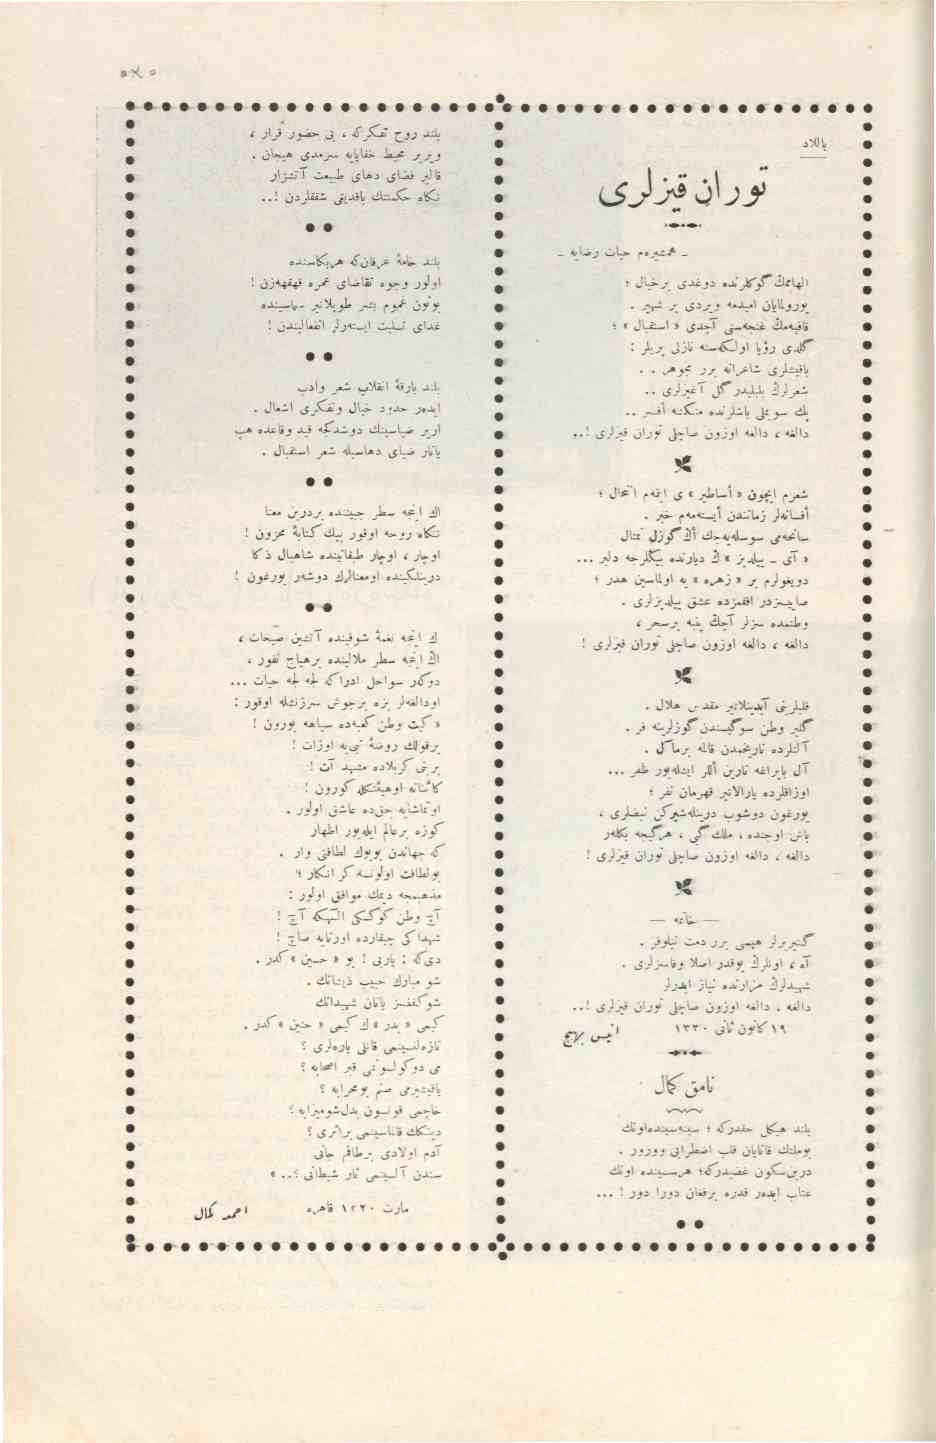 باللاد
توران قیزلری
ـ همشیره‌م حیات رضایه ـ
الهامڭ گوكلرنده دوغدی برخیال ؛
یورولمایان امیدمه ویردی بر شهپر .
قافیه‌مڭ غنچه‌سی آچدی « استقبال » ؛
گلدی رؤیا اولكه‌سنه نازلی پریلر :
باقیشلری شاعرانه برر مجوهر . .
شعرلرڭ بلبلیدر گل آغیزلری ..
پك سویملی باشلرنده منكشه افسر ..
دالغه ، دالغه اوزون صاچلی توران قیزلری !..
شعرم ایچون « أساطیر » ی ایتمه‌م انتحال ؛
أفسانه‌لر زماندن أیسته‌مه‌م خبر .
سانحه‌می سوسله‌یه‌جك أڭ گوزل تمثال
« آی ـ ییلدیز » ڭ دیارنده بیڭلرجه دلبر ...
دویغولرم بر « زهره » یه اولماسین هدر ؛
صاییسزدر افقمزده عشق ییلدیزلری .
وطنمده سزلر آچڭ پنبه برسحر ،
دالغه ، دالغه اوزون صاچلی توران قیزلری !
قلبلریتی آیدینلاتیر مقدس هلال .
گلیر وطن سوگیسندن گوزلرینه فر .
آلنلرده تاریخمدن قالمه برمآل .
آل بایراغه تارین أللر ایشله‌یور ظفر ...
اوزاقلرده یارالانیر قهرمان نفر ؛
یورغون دوشوب درینله‌شیركن نبضلری ،
باش اوجنده ، ملك گبی ، هرگیجه بكلر
دالغه ، دالغه اوزون صاچلی توران قیزلری !
— خاتمه —
گتیریرلر هپسی برر دمت نیلوفر .
آه ، اونلرڭ یوقدر اصلا وفاسزلری .
شهیدلرڭ مزارنده نیاز ایدرلر
دالغه ، دالغه اوزون صاچلی توران قیزلری !..
١٩ كانون ثانی ١٣٣٠
انیس بهیج
نامق كمال
بلند هیكل حقدركه ؛ سینه‌سینده‌اونك
بوملتك قانایان قلب اضطرابی وورور .
درین‌سكون غضبدركه؛ هرسسینده اونك
عتاب ایدەر قدره برفغان دورا دور ! ...
بلند روح تفكركه ، بی حضور قرار ،
ویریر محیط خفایایه سرمدی هیجان .
قالیر فضای دهای طبیعت آتشزار
نكاه حكمتنك یاقدیغی شفقلردن !..
بلند خامهٔ عرفان‌كه هربكاسنده
اولور وجوه تقاضای عمره قهقهه‌زن !
بوتون غموم بشر طوپلانیر سماسینده
غدای تسلیت ایسته‌رلر انفعالیندن !
بلند بارقهٔ انقلاب شعر وادب
ایدەر حدود خیال وتفكری اشعال .
اریر ضیاسینك دوشدكجه قید وقاعده هپ
یانار ضیای دهاسیله شعر استقبال .
اڭ اینجه سطر جبیننده بردرین معنا
نكاه روحه اوقور بیك كتابهٔ محزون !
اوچار ، اوچار طبقاتینده شاهبال ذكا
درینلكینده اومعنالرڭ دوشەر یورغون !
ك اینجه نغمهٔ شوقینده آتشین صیحات ،
اڭ اینجه سطر ملالینده برهیاج نفور ،
دوكەر سواحل ادراكه لجه لجه حیات ...
اودالغه‌لر بزه برجوش سرزنشله اوقور :
« كیت وطن كعبه‌ده سیاهه بورون !
برقولك روضهٔ نبی‌یه اوزات !
برینی كربلاده مشهد آت !
كائناته اوهیئتكله كورون !
اوتماشایه حق‌ده عاشق اولور .
كوزه برعالم ایله‌یور اظهار
كه جهاندن بویوك لطافتی وار .
بولطافت اولونسه‌كر انكار ؛
مذهبمجه دیمك موافق اولور :
آچ وطن كوكسكی الٓهكه آچ !
شهداكی چیقارده اورتایه صاچ !
دی‌كه : یاربی ! بو « حسین » كدر .
شو مبارك حبیب ذیشانك .
شوكفنسز یاتان شهیدانك
كیمی « بدر » ك كیمی « حنین » كدر .
تازه‌لنسینمی قانلی یاره‌لری ؟
می دوكولسونمی قبر اصحابه ؟
یاقیشیرمی صنم بومحرابه ؟
خاچمی قونسون بدل‌شومیزابه ؟
دینكك قالماسینمی براثری ؟
آدم اولادی برطاقم جانی
سندن آلسینمی ثار شیطانی ؟.. »
مارت ١٣٣٠ قاهره
احمد كمال